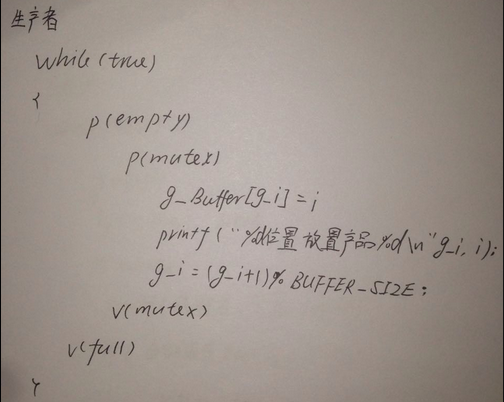 生产者
while(true)
{
p(empty)
p(mutex)
g_Buffer[g_i]=i
printf("%d位置放置产品%d\n"g_i, i);
g_i=(g_i+1)%BUFFER_SIZE;
v(mutex)
v(full)
}